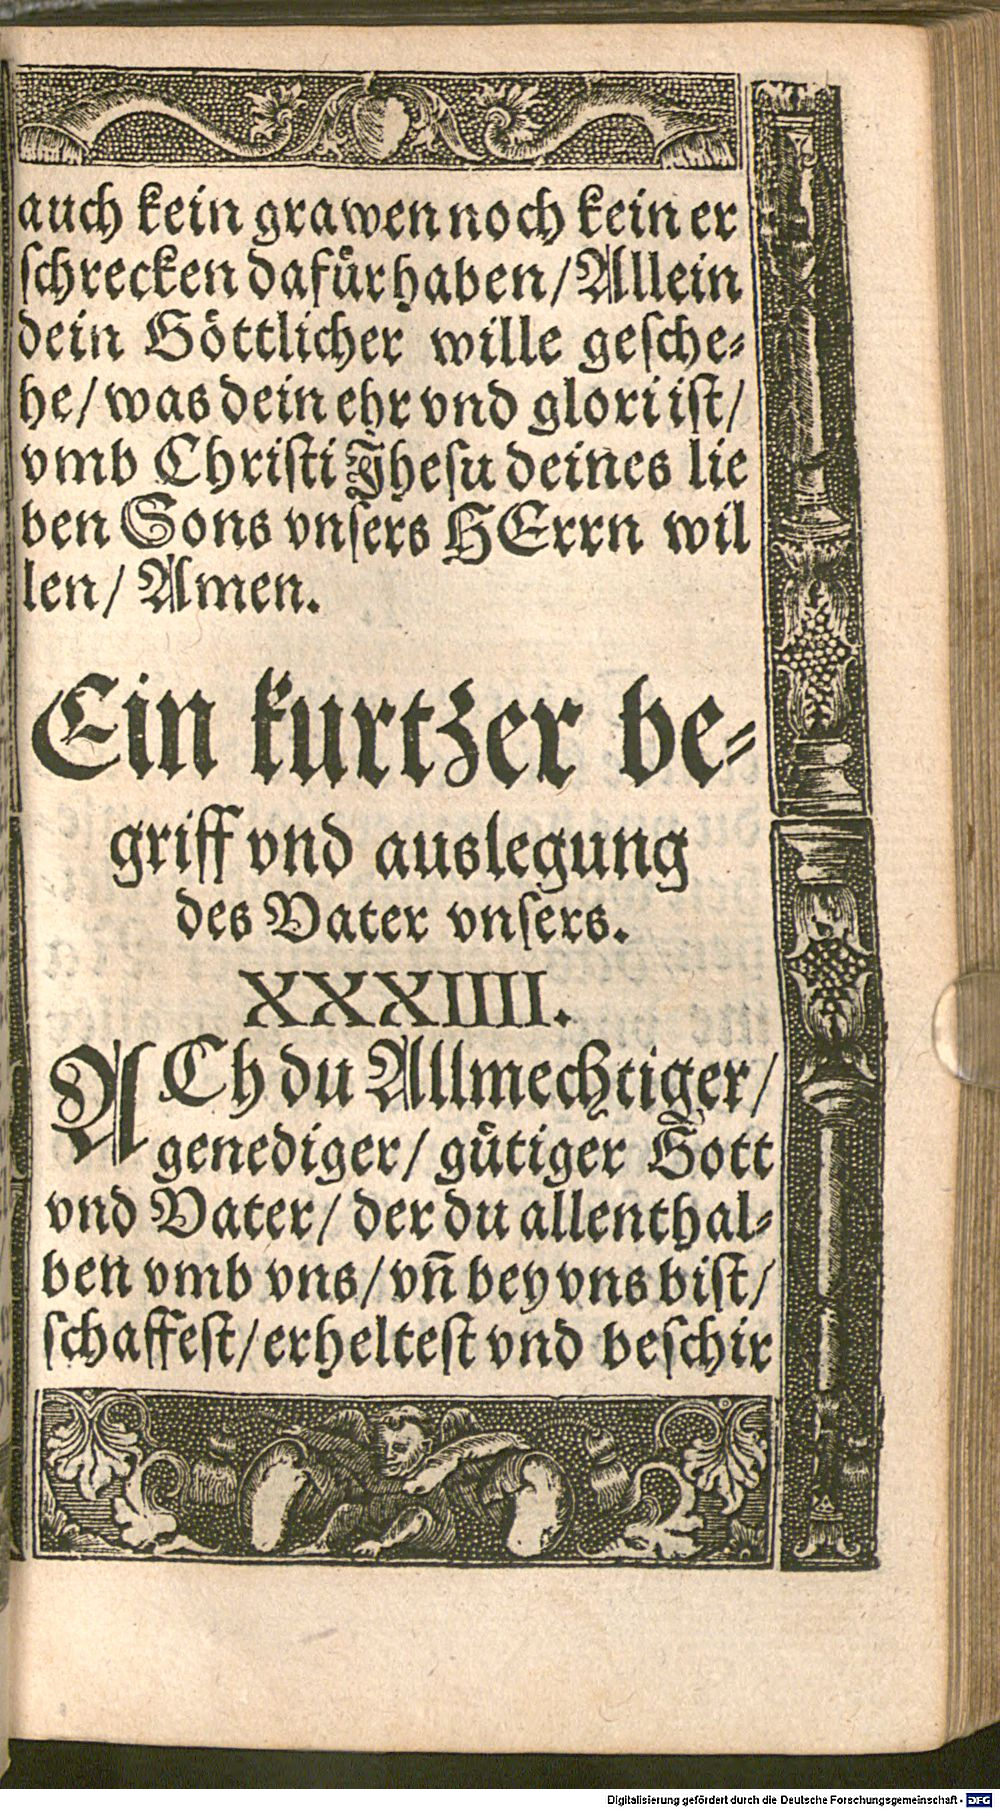 auch kein grawen noch kein er
schrecken dafür haben / Allein
dein Göttlicher wille gesche⸗
he / was dein ehr vnd glori ist /
vmb Christi Jhesu deines lie
ben Sons vnsers HErrn wil
len / Amen.
Ein kurtzer be⸗
griff vnd auslegung
des Vater vnsers.
XXXIIII.
ACh du Allmechtiger /
genediger / gütiger Gott
vnd Vater / der du allenthal⸗
ben vmb vns / vn̄ bey vns bist /
schaffest / erheltest vnd beschir
Digitalisierung gefördert durch die Deutsche Forschungsgemeinschaft - DFG